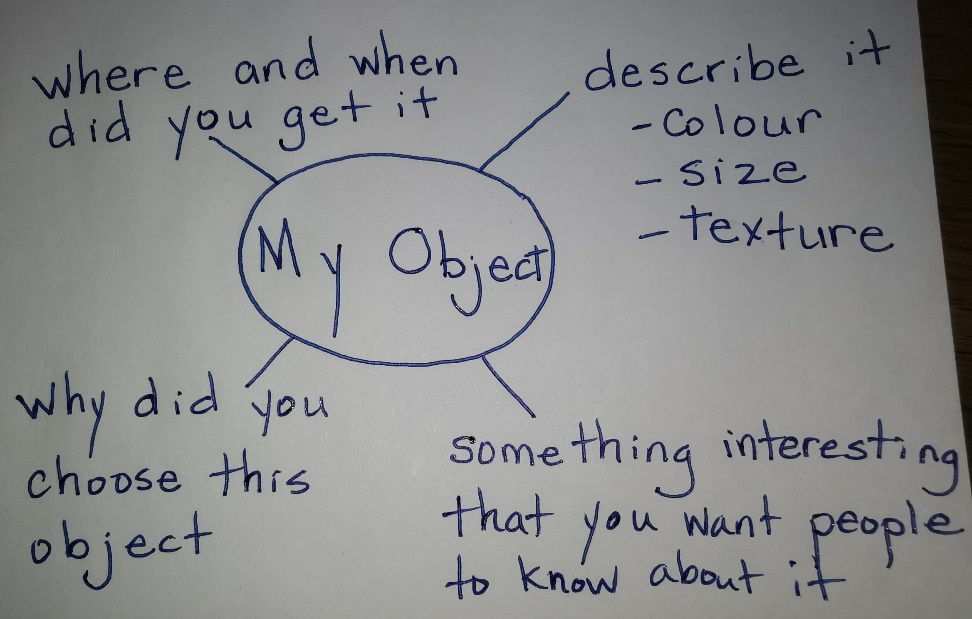 where and when
did you get it
describe it
- colour
- size
- texture
My Object
why did you
choose this
object
something interesting
that you want people
to know about it